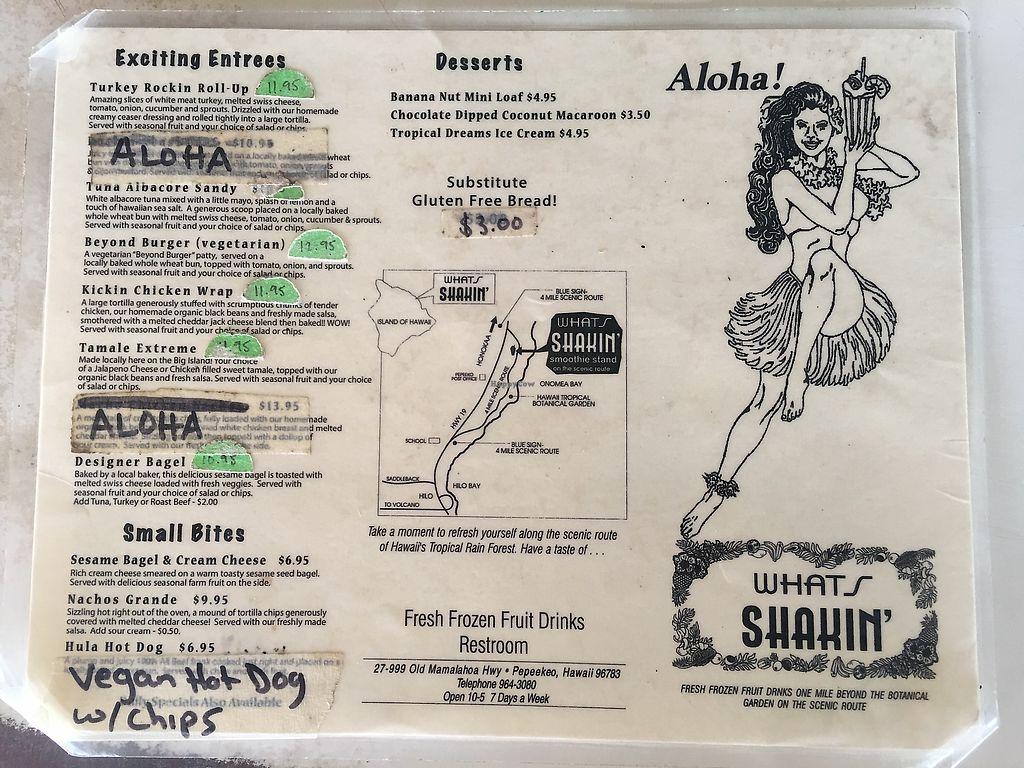 Exciting Entrees
Turkey Rockin Roll-Up 11.95
Amazing slices of white meat turkey, melted swiss cheese,
tomato, onion, cucumber and sprouts. Drizzled with our homemade
creamy ceaser dressing and rolled tightly into a large tortilla.
Served with seasonal fruit and your choice of salad or chips.
$10.95
ALOHA
on a locally baked wheat
salad or chips.
Tuna Albacore Sandy
White albacore tuna mixed with a little mayo, splash of lemon and a
touch of hawaiian sea salt. A generous scoop placed on a locally baked
whole wheat bun with melted swiss cheese, tomato, onion, cucumber & sprouts.
Served with seasonal fruit and your choice of salad or chips.
Beyond Burger (vegetarian) 12.95
A vegetarian "Beyond Burger" patty, served on a
locally baked whole wheat bun, topped with tomato, onion, and sprouts.
Served with seasonal fruit and your choice of salad or chips.
Kickin Chicken Wrap 11.95
A large tortilla generously stuffed with scrumptious chunks of tender
chicken, our homemade organic black beans and freshly made salsa,
smothered with a melted cheddar jack cheese blend then baked!! WOW!
Served with seasonal fruit and your choice of salad or chips.
Tamale Extreme 11.95
Made locally here on the Big Island! Your choice
of a Jalapeno Cheese or Chicken filled sweet tamale, topped with our
organic black beans and fresh salsa. Served with seasonal fruit and your choice
of salad or chips.
$13.95
fully loaded with our homemade
ALOHA
white chicken breast and melted
topped with a dollop of
sour cream. Served with our fresh side.
Designer Bagel 10.95
Baked by a local baker, this delicious sesame bagel is toasted with
melted swiss cheese loaded with fresh veggies. Served with
seasonal fruit and your choice of salad or chips.
Add Tuna, Turkey or Roast Beef - $2.00
Small Bites
Sesame Bagel & Cream Cheese $6.95
Rich cream cheese smeared on a warm toasty sesame seed bagel.
Served with delicious seasonal farm fruit on the side.
Nachos Grande $9.95
Sizzling hot right out of the oven, a mound of tortilla chips generously
covered with melted cheddar cheese! Served with our freshly made
salsa. Add sour cream - $0.50.
Hula Hot Dog $6.95
A plump and juicy 100% All Beef frank cooked just right and placed on a
Vegan Hot Dog
Daily Specials Also Available
w/Chips
Desserts
Banana Nut Mini Loaf $4.95
Chocolate Dipped Coconut Macaroon $3.50
Tropical Dreams Ice Cream $4.95
Substitute
Gluten Free Bread!
$3.00
WHATS
SHAKIN'
ISLAND OF HAWAII
BLUE SIGN-
4 MILE SCENIC ROUTE
HONOKAA
WHATS
SHAKIN'
smoothie stand
on the scenic route
PEPEEKO
POST OFFICE
HappyCow
ONOMEA BAY
4 MILE SCENIC ROUTE
HAWAII TROPICAL
BOTANICAL GARDEN
HWY 19
SCHOOL
BLUE SIGN-
4 MILE SCENIC ROUTE
SADDLEBACK
HILO BAY
HILO
TO VOLCANO
Take a moment to refresh yourself along the scenic route
of Hawaii's Tropical Rain Forest. Have a taste of . . .
Fresh Frozen Fruit Drinks
Restroom
27-999 Old Mamalahoa Hwy • Pepeekeo, Hawaii 96783
Telephone 964-3080
Open 10-5 7 Days a Week
Aloha!
WHATS
SHAKIN'
FRESH FROZEN FRUIT DRNKS ONE MILE BEYOND THE BOTANICAL
GARDEN ON THE SCENIC ROUTE